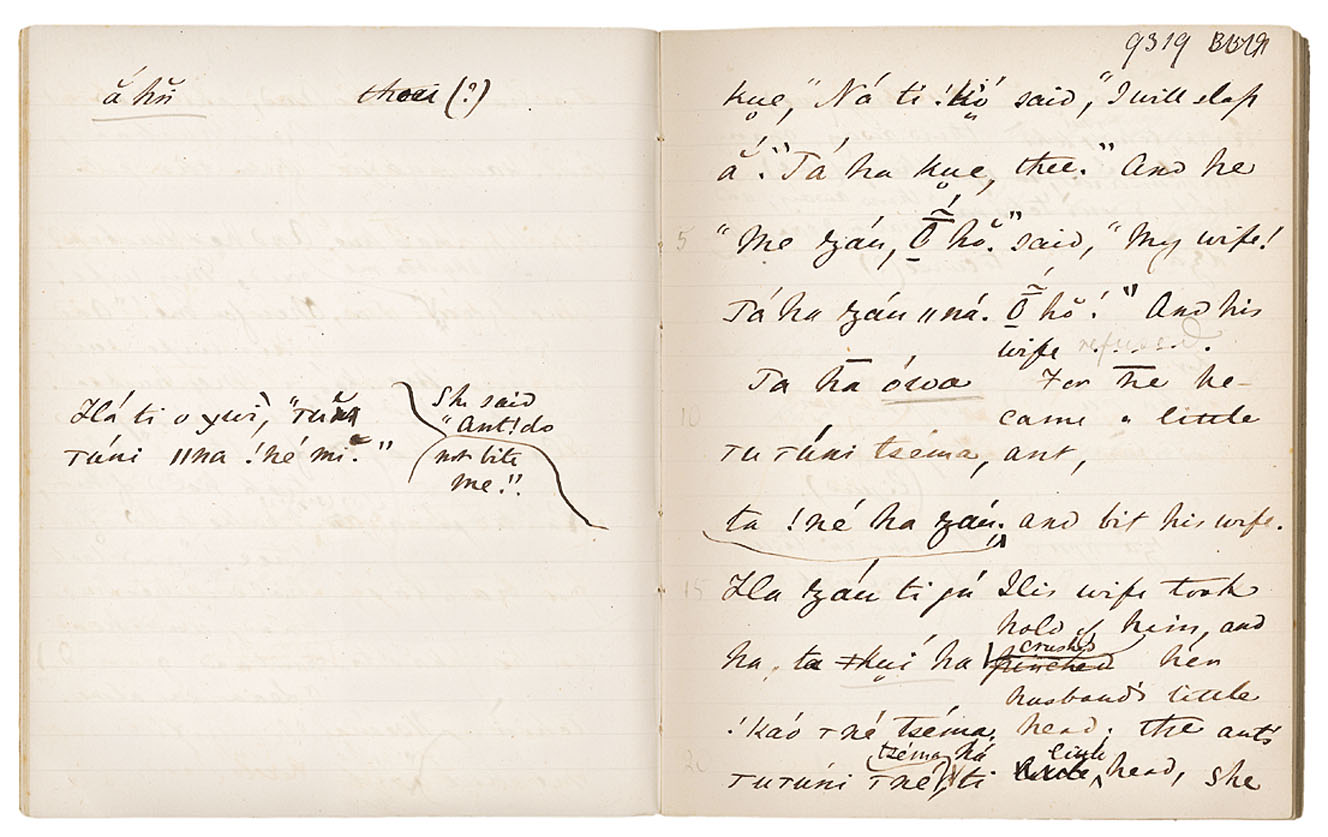 ắ hn̆
thou (?)
Há ti o χwĭ, "Tu
túni ǁna !né mĭ."
She said
"Ant! do
not bite
me."
9319
kuẹ, "Ná ti !kó̤ said, "I will slap
ắ." Tá ha kuẹ, thee." And he
5 "Mẹ ʒáu, Ṓ̃ hŏ." said, "My wife!
Tá ha ʒáu ǁná. Ṓ̃ hŏ!" And his
wife refused.
Ta hā ówa For he be-
10 came a little
tu túni tséma, ant,
ta !né ha ʒáu. and bit his wife.
15 Ha ʒáu ti ǵu His wife took
hold of him, and
ha, ta ǂkuí ha crushed pinched her
husband's little
!kaó τné tséma. head; the ant's
20 tutúni τné tséma, há ti little head, she